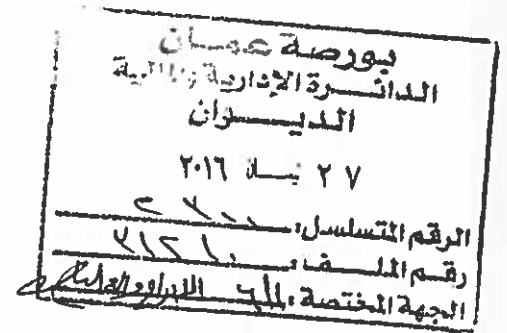 بورصة عمان
الدائرة الإدارية والمالية
الديوان
٢٧ نيسان ٢٠١٦
الرقم المتسلسل:
رقم الملف: ٣١٢١٠
الجهة المختصة: